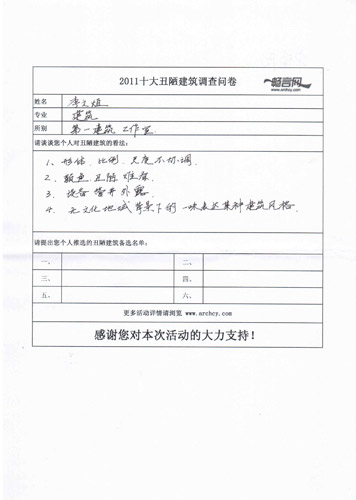 2011十大丑陋建筑调查问卷
畅言网
www.archcy.com
姓名 李文旭
专业 建筑
所别 第一建筑工作室
请谈谈您个人对丑陋建筑的看法:
1、形体、比例、尺度不协调
2、颜色
3、设备管井外露
4、无文化地域背景下的一味表达某种建筑风格.
请提出您个人推选的丑陋建筑备选名单:
一、 二、
三、 四、
五、 六、
更多活动详情请浏览 www.archcy.com
感谢您对本次活动的大力支持!